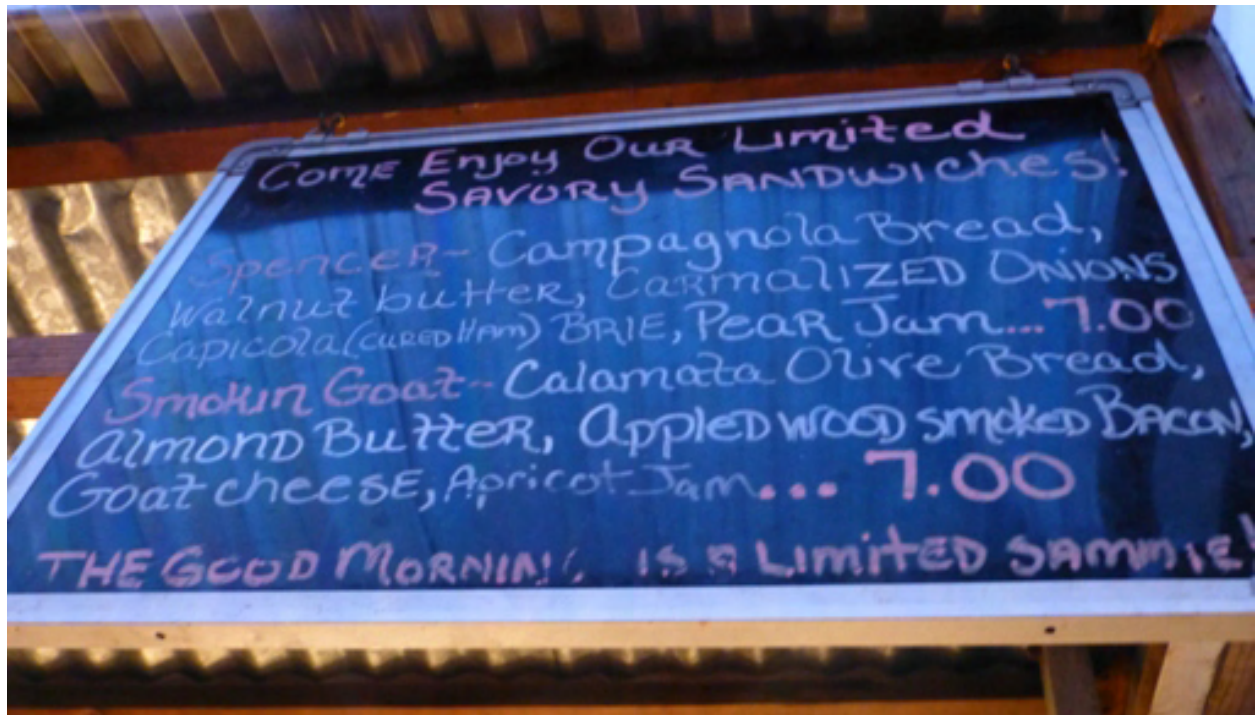 Come Enjoy Our Limited
Savory Sandwiches!
Spencer- Campagnola Bread,
Walnut butter, Carmalized Onions
Capicola (cured Ham) Brie, Pear Jam... 7.00
Smokin Goat- Calamata Olive Bread,
Almond Butter, Appled wood smoked Bacon,
Goat cheese, Apricot Jam... 7.00
The Good Mornin' is a Limited Sammie!